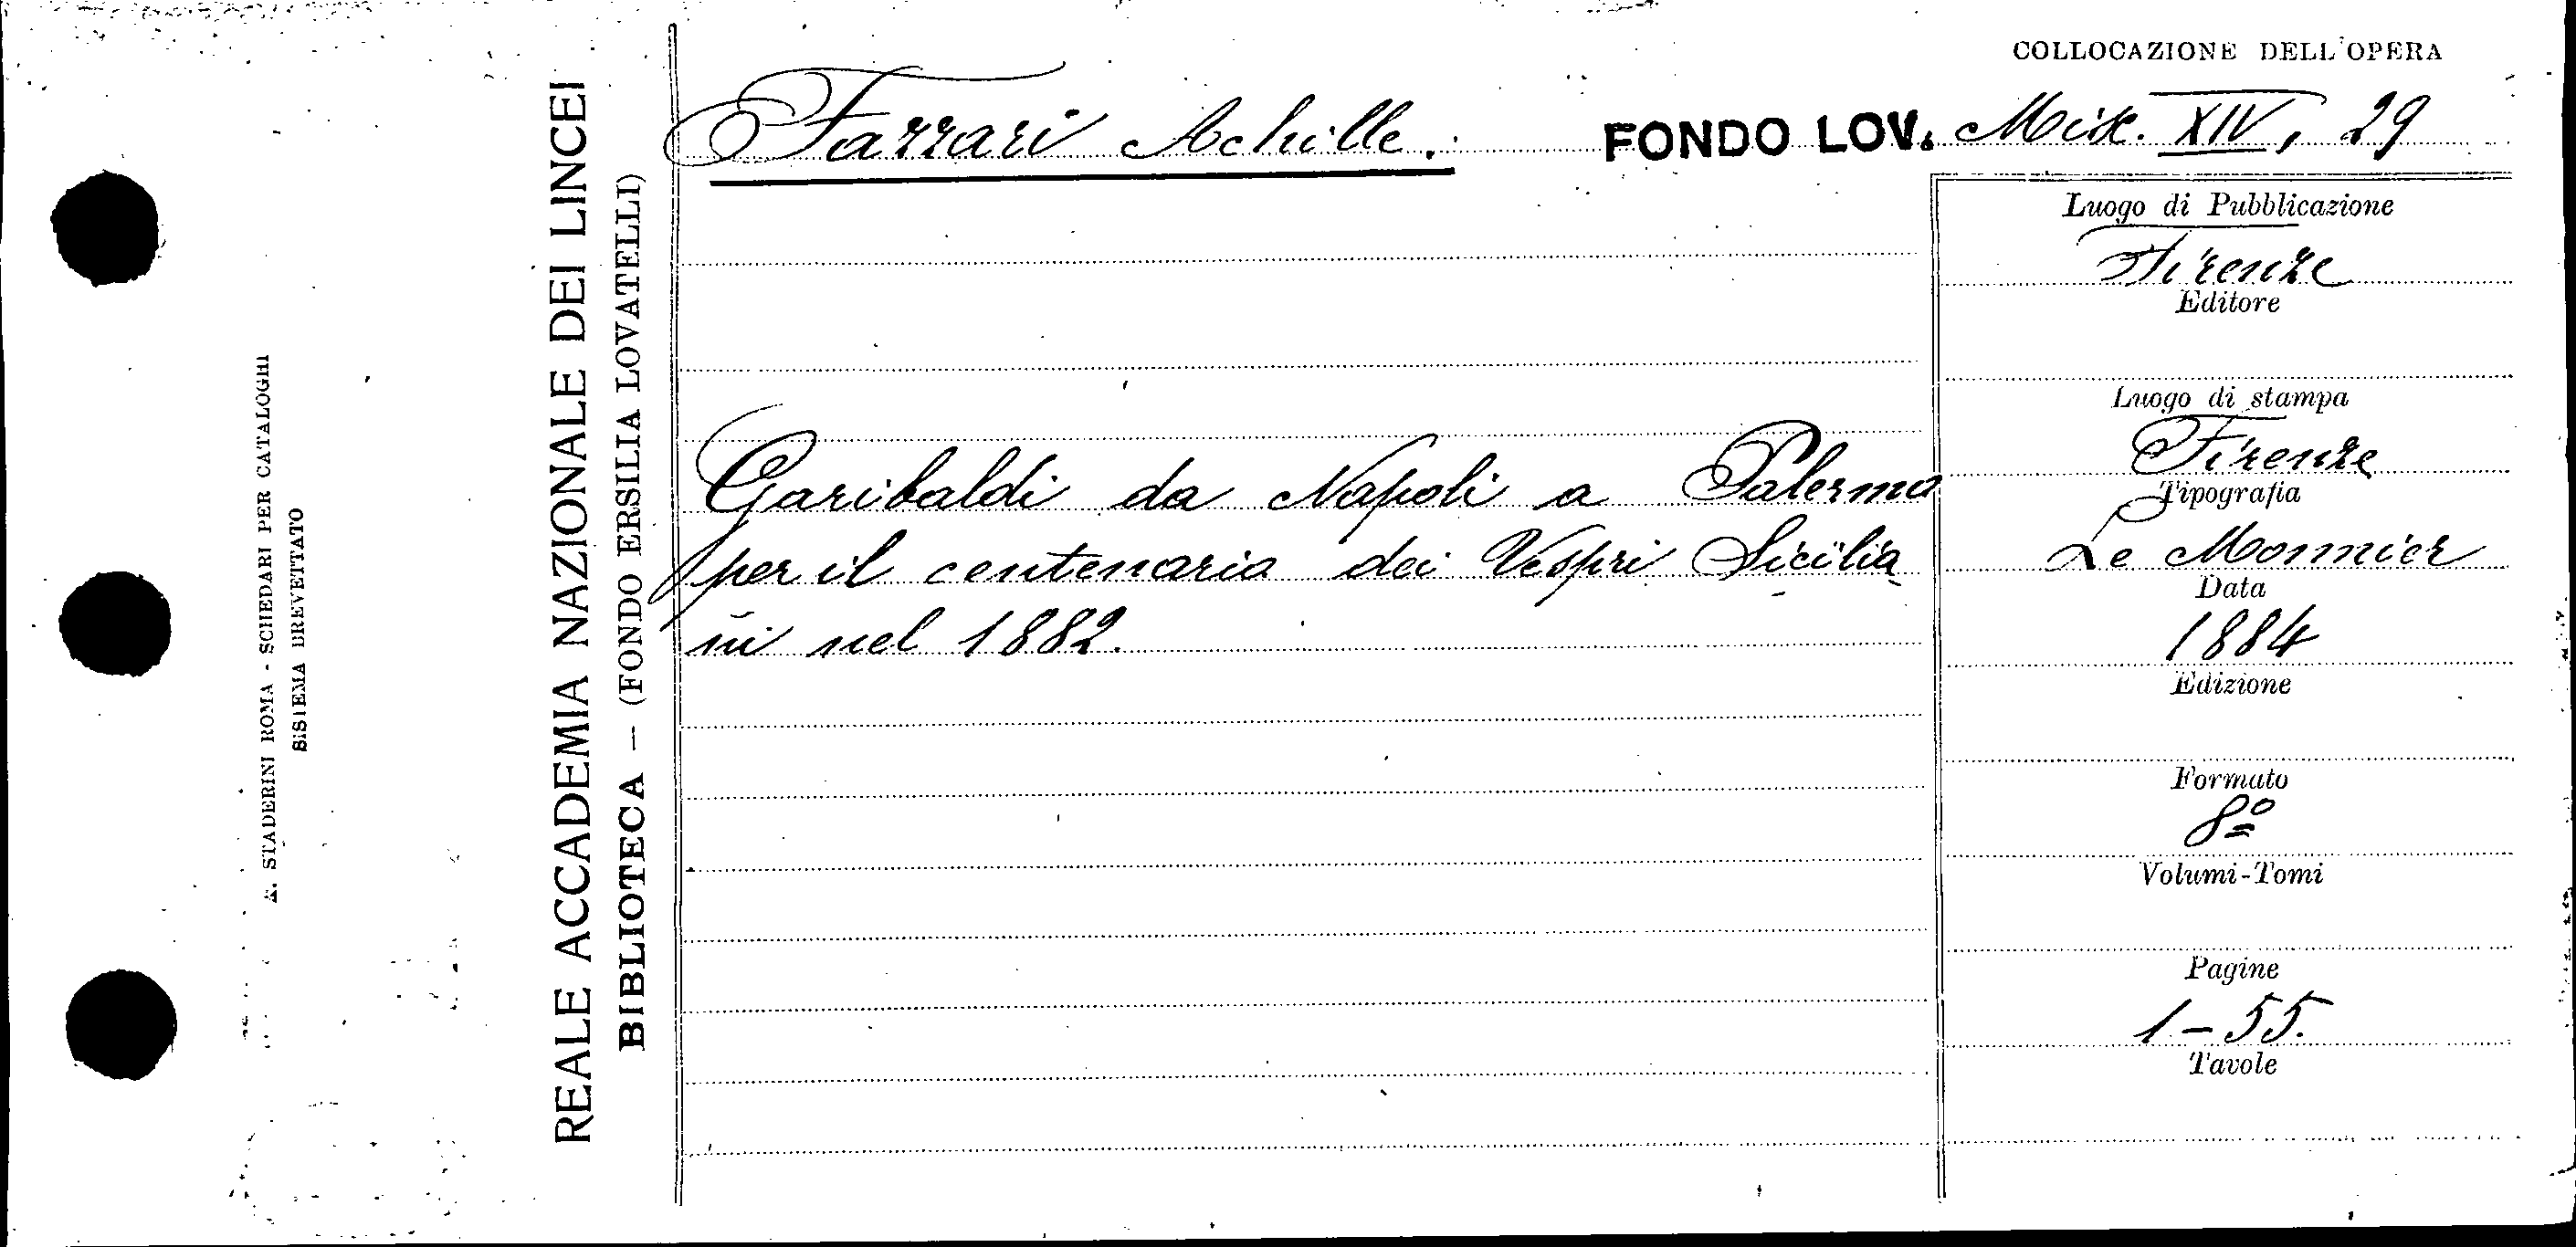 COLLOCAZIONE DELL'OPERA
Fazzari Achille.
FONDO LOV. Misc. XIV, 29
Garibaldi da Napoli a Palermo
per il centenario dei Vespri Sicilia
ni nel 1882.
Luogo di Pubblicazione
Firenze
Editore
Luogo di stampa
Firenze
Tipografia
Le Monnier
Data
1884
Edizione
Formato
8º
Volumi-Tomi
Pagine
1-55.
Tavole
REALE ACCADEMIA NAZIONALE DEI LINCEI
BIBLIOTECA — (FONDO ERSILIA LOVATELLI)
A. STADERINI ROMA - SCHEDARI PER CATALOGHI
SISTEMA BREVETTATO